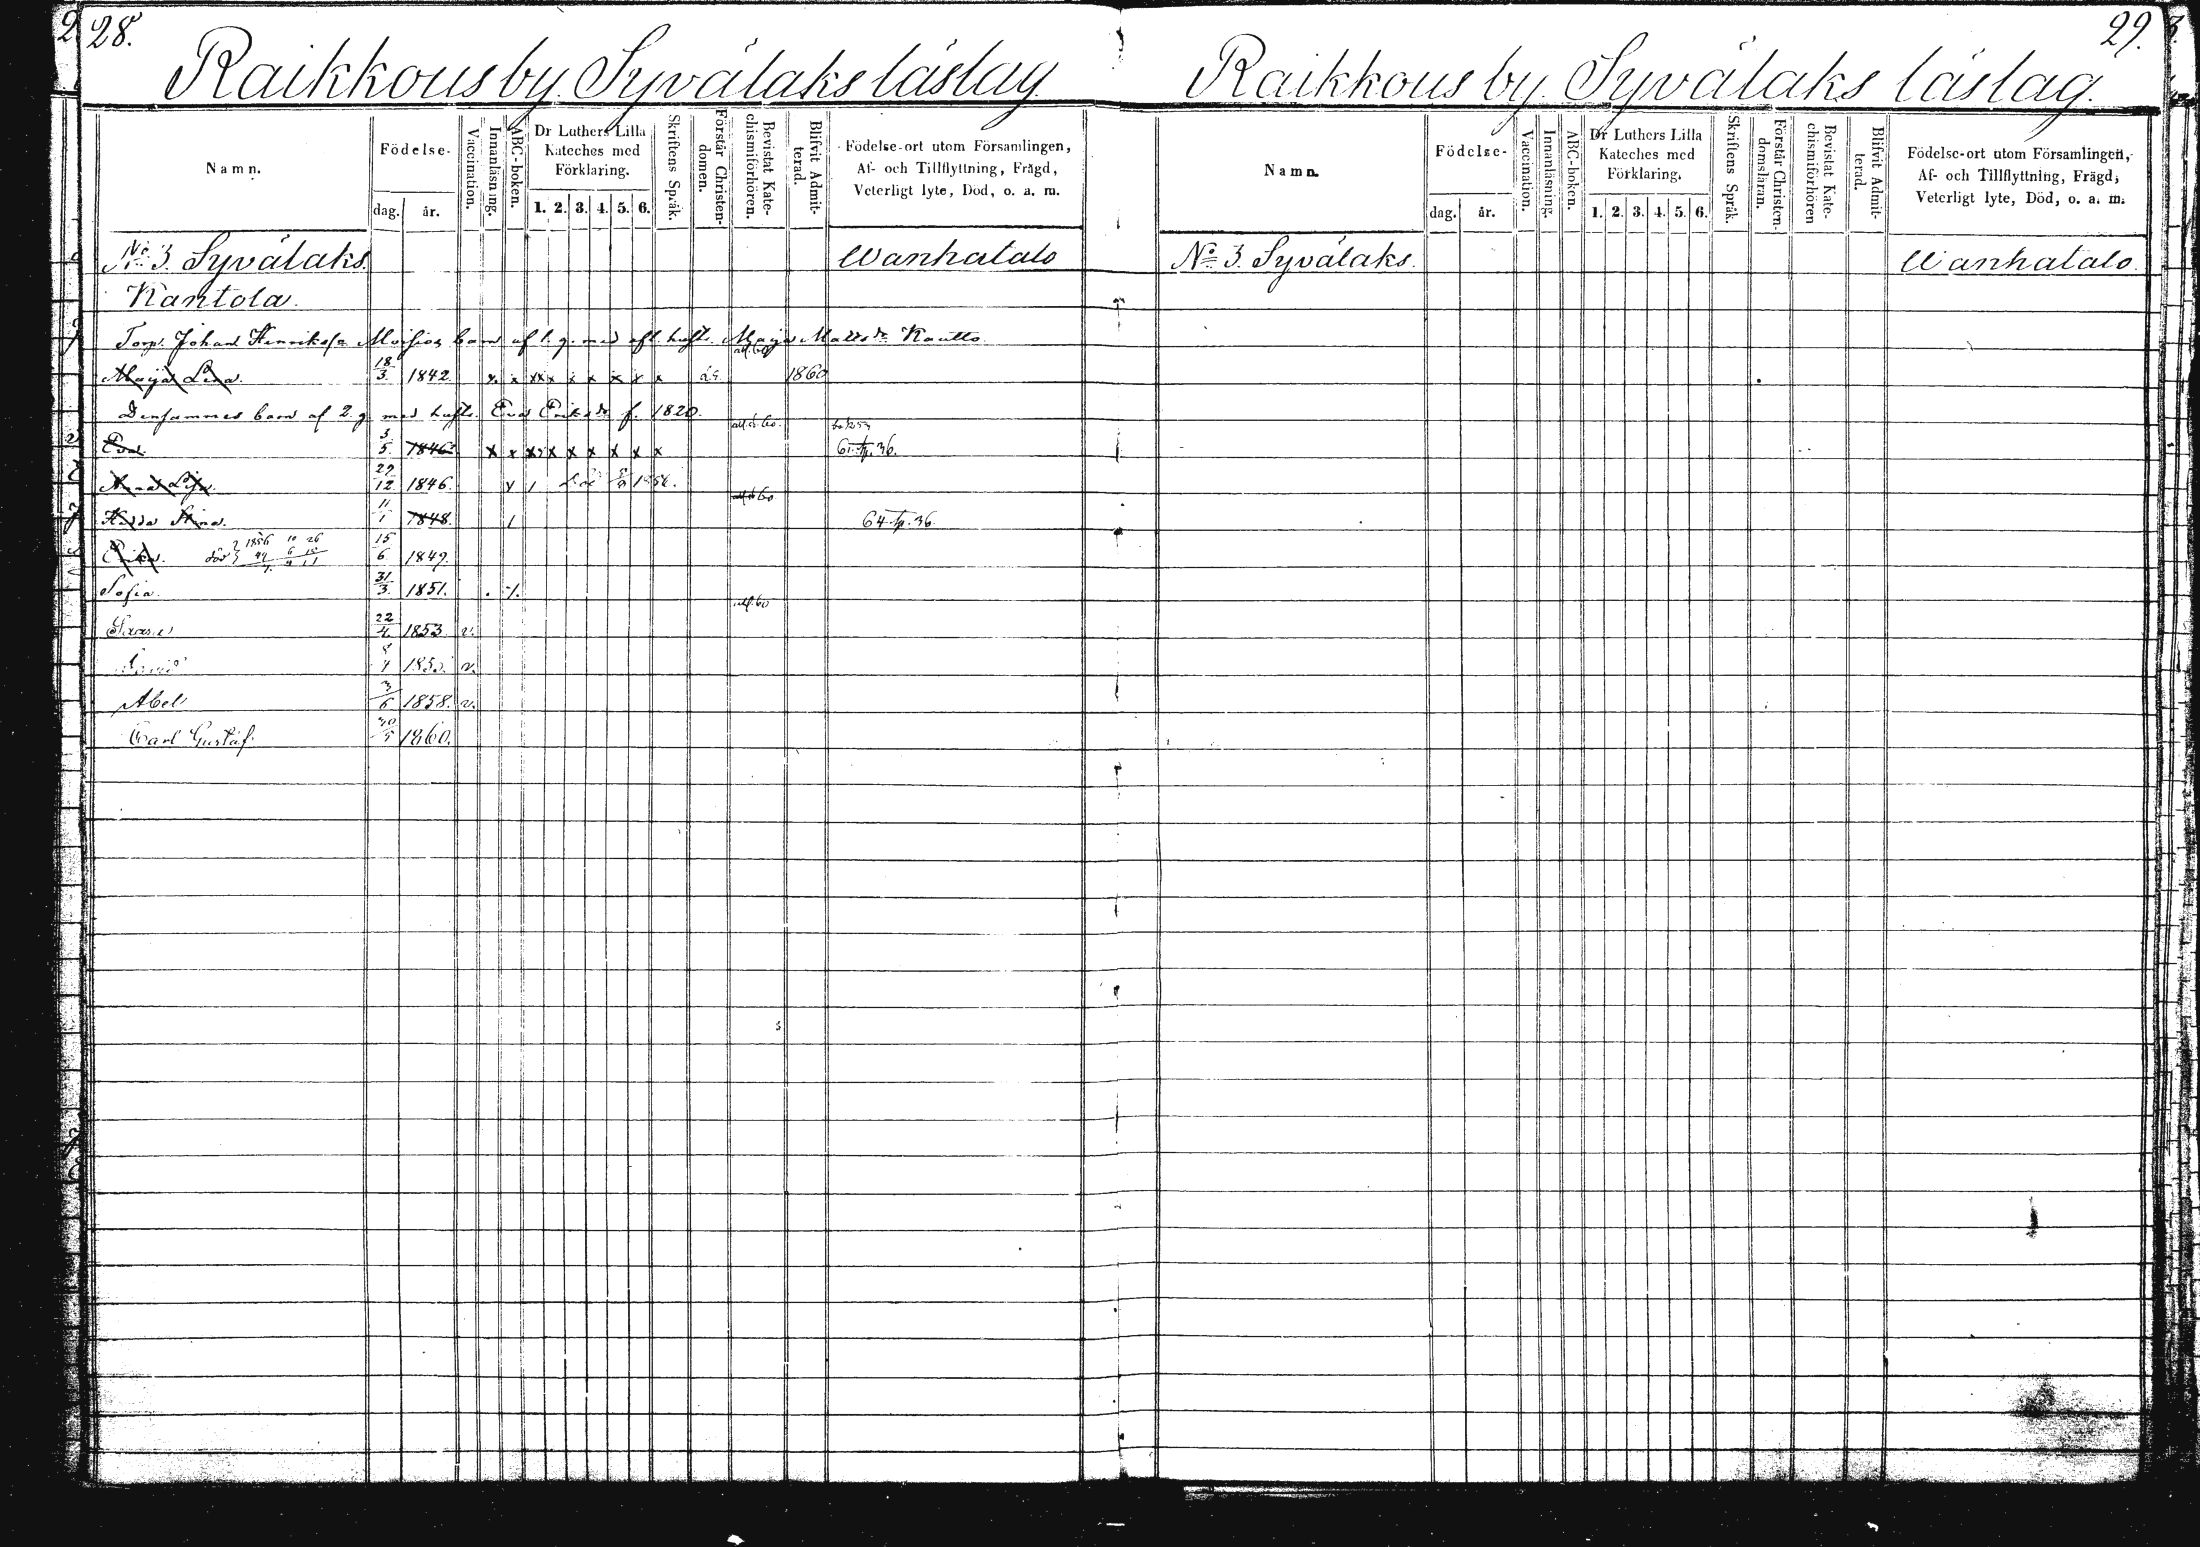 28.
Raikkous by. Syvälaks läslag.
Namn.
Födelse-
dag. år.
Vaccination.
Innanläsning.
ABC-boken.
Dr Luthers Lilla Kateches med Förklaring.
1. 2. 3. 4. 5. 6.
Skriftens Språk.
Förstår Christen-domen.
Bevistat Kate-chismiförhören.
Blifvit Admit-terad.
Födelse-ort utom Församlingen, Af- och Tillflyttning, Frägd, Veterligt lyte, Död, o. a. m.
No 3. Syvälaks. Wanhatalo
Kantola.
Torp. Johan Henriks barn af 1. g. med afl. hust. Maja Mattsdr Kautto
Maija Lena. 18/3 1842. x x x x x x x x x 1860
Densammes barn af 2. g. med hust. Eva Eriksdr f. 1820.
Eva 3/5 1846 x x x x x x x x x 61. p. 36.
Anna Lisa. 29/12 1846.
Hedda Stina. 11/1 1848. 64. p. 36.
Erika. död 1856 10 26 49 6 15 15/6 1849.
Sofia. 31/3 1851.
22/4 1853 v.
David 8/4 v.
Abel 3/6 1858. v.
Carl Gustaf. 1860.
29.
Raikkous by. Syvälaks läslag.
Namn.
Födelse-
dag. år.
Vaccination.
Innanläsning.
ABC-boken.
Dr Luthers Lilla Kateches med Förklaring.
1. 2. 3. 4. 5. 6.
Skriftens Språk.
Förstår Christen-domsläran.
Bevistat Kate-chismiförhören
Blifvit Admit-terad.
Födelse-ort utom Församlingen, Af- och Tillflyttning, Frägd, Veterligt lyte, Död, o. a. m.
No 3. Syvälaks. Wanhatalo.